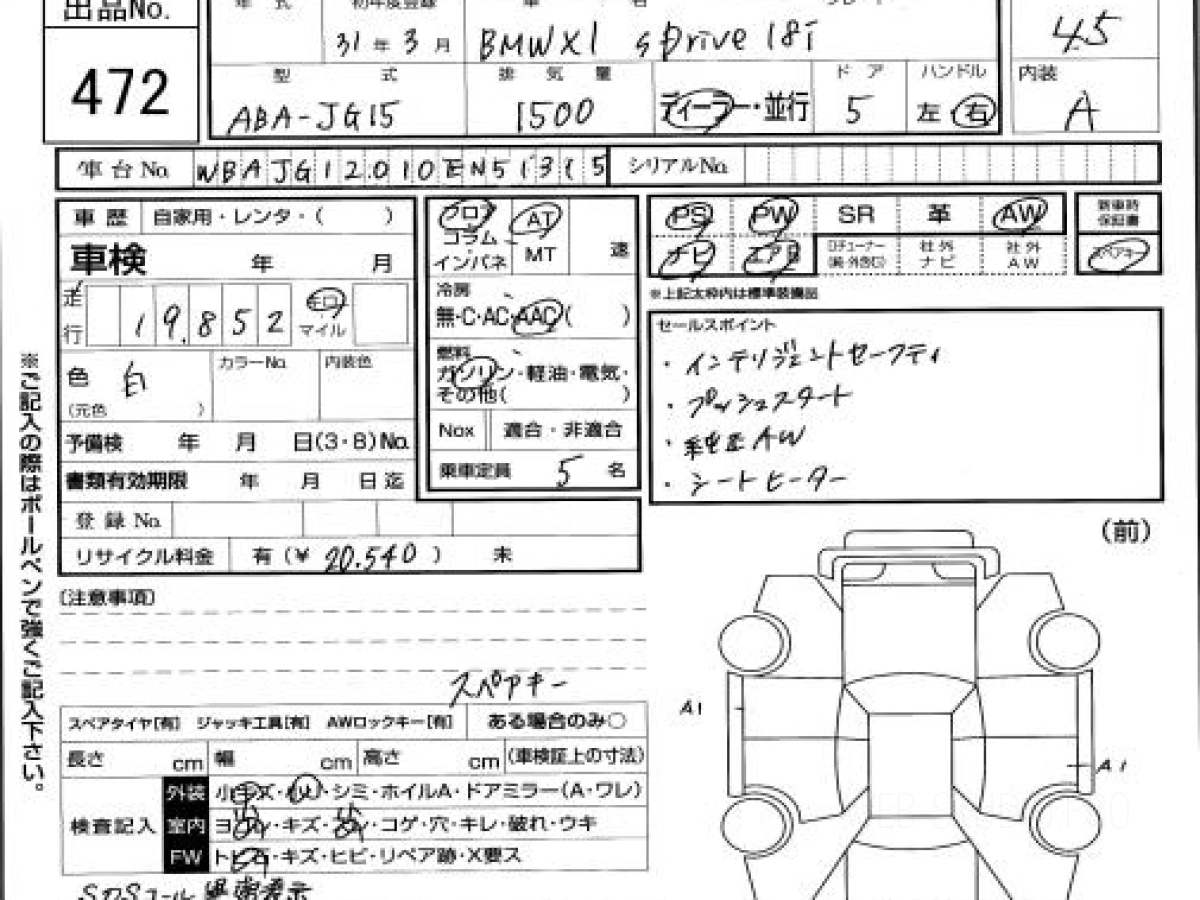 出品No.
472
年 式 初年度登録 車 名 グレード
31年3月 BMWX1 sDrive 18i
4.5
型 式 排 気 量 ドア ハンドル
ABA-JG15 1500 ディーラー・並行 5 左 右
内装
A
車台No. WBAJG12010EN51315 シリアルNo.
車歴 自家用・レンタ・( )
車検 年 月
走行 19.852 キロ マイル
色 白 (元色 )
カラーNo. 内装色
予備検 年 月 日(3・8)No.
書類有効期限 年 月 日迄
登録No.
リサイクル料金 有(¥ 20.540 ) 未
フロア コラム インパネ
AT MT 速
冷房
無・C・AC・AAC( )
燃料
ガソリン・軽油・電気・
その他( )
Nox 適合・非適合
乗車定員 5 名
PS PW SR 革 AW
ナビ エアB 社外ナビ 社外AW
新車時保証書
スペアキー
※上記太枠内は標準装備品
セールスポイント
・インテリジェントセーフティ
・プッシュスタート
・純正AW
・シートヒーター
※ご記入の際はボールペンで強くご記入下さい。
(注意事項)
(前)
スペアキー
スペアタイヤ[有] ジャッキ工具[有] AWロックキー[有] ある場合のみ○
長さ cm 幅 cm 高さ cm (車検証上の寸法)
検査記入
外装 小キズ・・シミ・ホイルA・ドアミラー(A・ワレ)
室内 ・キズ・・コゲ・穴・キレ・破れ・ウキ
FW トビ石・キズ・ヒビ・リペア跡・X要ス
SOSコール異常表示
A1
A1